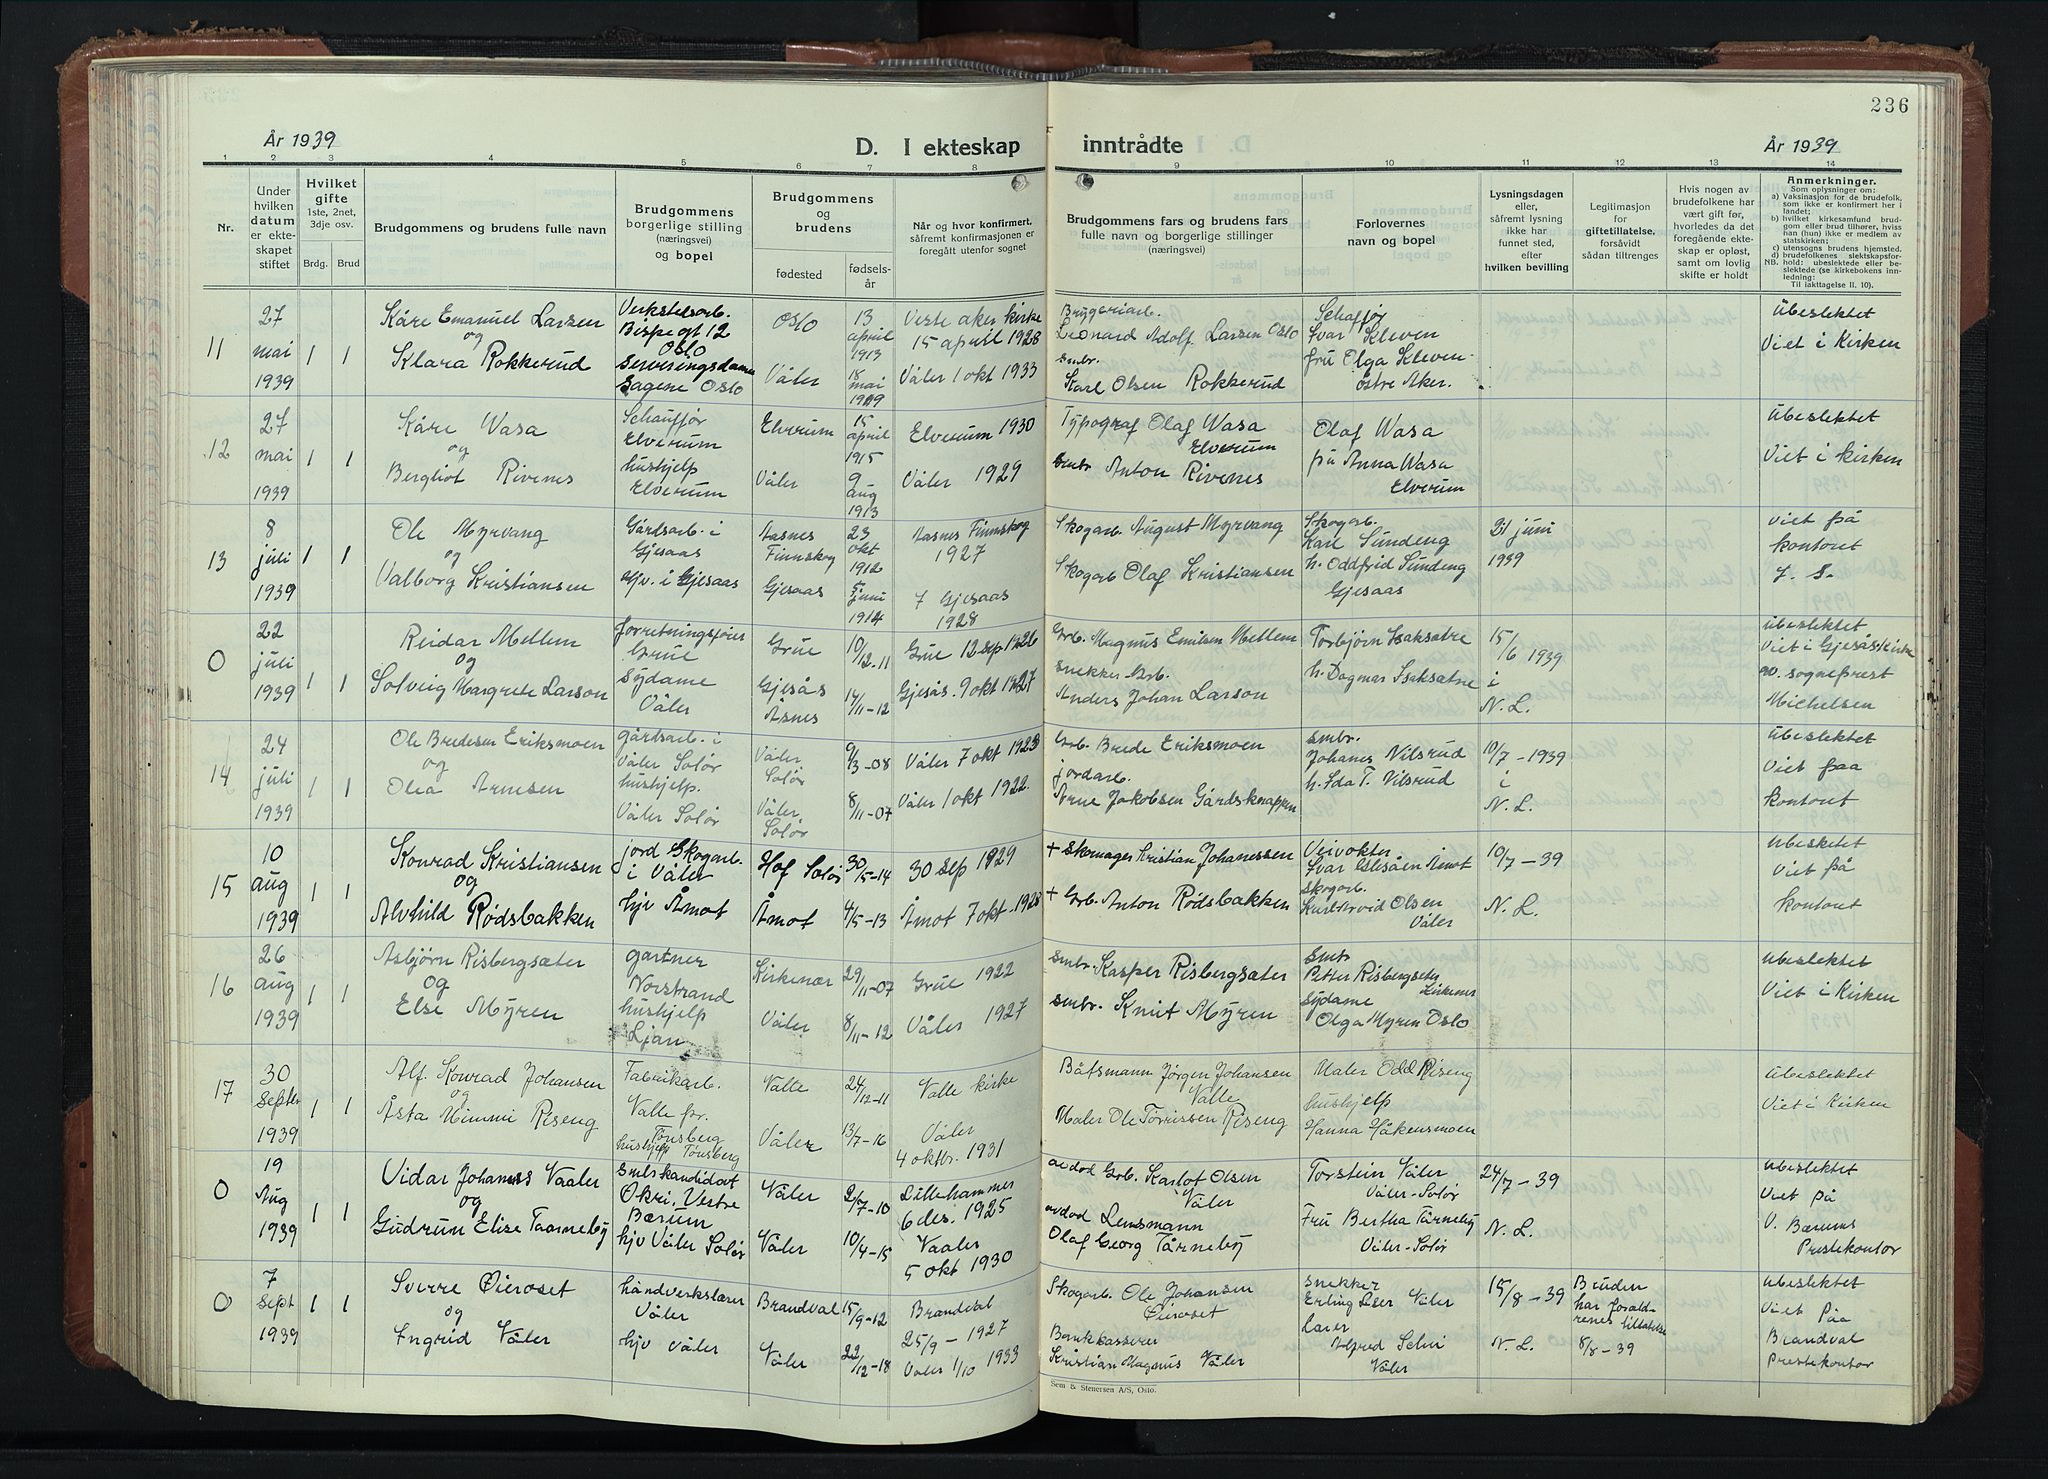 236
År 1939
D. I ekteskap inntrådte
År 1939
1 2 3 4 5 6 7 8 9 10 11 12 13 14
Nr.
Under hvilken datum er ekteskapet stiftet
Hvilket gifte
1ste, 2net, 3dje osv.
Brdg. Brud
Brudgommens og brudens fulle navn
Brudgommens borgerlige stilling (næringsvei) og bopel
Brudgommens og brudens
fødested
fødselsår
Når og hvor konfirmert, såfremt konfirmasjonen er foregått utenfor sognet
Brudgommens fars og brudens fars fulle navn og borgerlige stillinger (næringsvei)
Forlovernes navn og bopel
Lysningsdagen eller, såfremt lysning ikke har funnet sted, efter hvilken bevilling
Legitimasjon for giftetillatelse, forsåvidt sådan tiltrenges
Hvis nogen av brudefolkene har vært gift før, hvorledes da det foregående ekteskap er opløst, samt om lovlig skifte er holdt
Anmerkninger.
Som oplysninger om:
a) Vaksinasjon for de brudefolk, som ikke er konfirmert her i landet;
b) hvilket kirkesamfund brudgom eller brud tilhører, hviss han (hun) ikke er medlem av statskirken;
c) utensogns brudens hjemsted.
d) brudefolkenes slektskapsforhold: ubeslektede eller beslektede (se kirkebokens innledning:
NB. Til iakttagelse II. 10).
11
27 mai 1939
1 1
Kåre Emanuel Larsen
og
Klara Rokkerud
Verkstedarb.
Bispe gt 12
Oslo
Serveringsdame
Sagene Oslo
Oslo
Våler
13 april 1913
18 mai 1919
Vestre aker kirke
15 april 1928
Våler 1 okt 1933
Bryggeriarb.
Leonard Adolf Larsen Oslo
Smbr.
Karl Olsen Rokkerud
Schaffør
Ivar Kleven
fru Olga Kleven
østre Aker.
Ubeslektet
Viet i Kirken
12
27 mai 1939
1 1
Kåre Wasa
og
Bergliot Rivenes
Schauffør
Elverum
hushjelp
Elverum
Elverum
Våler
15 april 1915
9 aug 1913
Elverum 1930
Våler 1929
Typograf Olaf Wasa
Elverum
Smbr Anton Rivenes
Olaf Wasa
fru Anna Wasa
Elverum
Ubeslektet
Viet i kirken
13
8 juli 1939
1 1
Ole Myrvang
og
Valborg Kristiansen
Gårdsarb. i
Gjesaas
Hjv. i Gjesaas
Aasnes
Finnskog
Gjesaas
23 okt 1912
5 juni 1914
Aasnes Finnskog
1927
7 Gjesaas
1928
Skogarb. August Myrvang
Skogarb Olaf Kristiansen
Skogarb.
Karl Sundeng
h. Oddfrid Sundeng
Gjesaas
21 juni
1939
Viet på
kontoret
J. S.
0
22 juli 1939
1 1
Reidar Mellem
og
Solveig Margrete Larson
forretningsfører
Grue
Sydame
Våler
Grue
Gjesås
Åsnes
10/12-11
14/11-12
Grue 12 sep 1926
Gjesås. 9 okt 1927
Grb. Magnus Emilsen Mellem
Snekker Grb.
Anders Johan Larson
Torbjørn Isaksætre
h. Dagmar Isaksætre
15/6 1939
i
N. L.
Ubeslektet
Viet i Gjesås kirke
av. sogneprest
Michelsen
14
24 juli 1939
1 1
Ole Bredesen Eriksmoen
og
Olea Arnesen
gårdsarb. i
Våler Solør
hushjelp.
Våler Solør
Våler.
Solør
Våler.
Solør
9/3-08
8/11-07
Våler 7 okt 1923
Våler 1 okt 1922.
Grb. Brede Eriksmoen
jordarb.
Arne Jakobsen Gårdsknappen
Smbr.
Johanes Nilsrud
h. Ida T. Nilsrud
10/7-1939
i
N. L.
Ubeslektet
Viet paa
kontoret
15
10 aug 1939
1 1
Konrad Kristiansen
og
Alvhild Rødsbakken
jord Skogarb.
i Våler
hjv Åmot
Hof Solør
Åmot
30/5-14
4/5-13
30 sep 1929
Åmot 7 okt. 1928
+ Skomager Kristian Johanessen
+ Grb. Anton Rødsbakken
Veivokter
Ivar Glesåen Åmot
Skogarb.
Karl Arvid Olsen
Våler
10/7-39
N. L.
Ubeslektet
Viet på
kontoret
16
26 aug 1939
1 1
Asbjørn Risbergsæter
og
Else Myren
gartner
Norstrand
hushjelp
Ljan
Kirkenær
Våler
29/11-07
8/11-12
Grue 1922
Våler 1927
Smbr. Kasper Risbergsæter
Smbr. Knut Myren
Smbr
Petter Risbergsetr
Kirkenes
Sydame
Olga Myren Oslo
Ubeslektet
Viet i Kirken
17
30 Septbr 1939
1 1
Alf. Konrad Johansen
og
Åsta Mimmi Riseng
Fabrikarb.
Valle pr.
Tønsberg
hushjelp Tønsberg
Valle
Våler
24/12-11
13/7-16
Valle kirke
Våler
4 oktbr. 1931
Båtsmann Jørgen Johansen
Valle
Maler Ole Torrissen Riseng
Maler Odd Riseng
hushjelp
Hanna Håkensmoen
Ubeslektet
Viet i Kirken
0
19 Aug 1939
1 1
Vidar Johannes Vaaler
og
Gudrun Elise Taarneby
Smlskandidat
Økri. Vestre
Bærum
hjv Våler Solør
Våler
Våler
2/7-10
10/4-15
Lillehammer
6 des. 1925
Vaaler
5 okt 1930
avdød Grb. Karlot Olsen
Våler
avdød Lensmann
Olaf Georg Tårneby
Torstein Våler
Våler-Solør
Fru Bertha Tårneby
Våler-Solør
24/7-39
N. L.
Ubeslektet
Viet på
V. Bærums
Prestekontor
0
7 Sept 1939
1 1
Sverre Øieroset
og
Ingrid Våler
håndverkslærer
Våler
hjv Våler
Brandval
Våler
15/9-12
22/12-18
Brandval
25/9-1927
Våler 1/10 1933
Skogarb. Ole Johansen
Øieroset
Bankkasserer
Kristian Magnus Våler
Snekker
Erling Lier Våler
Lærer
Alfred Selvi
Våler
15/8-39
N. L.
Bruden
har forældrenes tillatelse
8/8-39
Ubeslektet
Viet Paa
Brandval
Prestekontor
Sem & Stenersen A/S, Oslo.